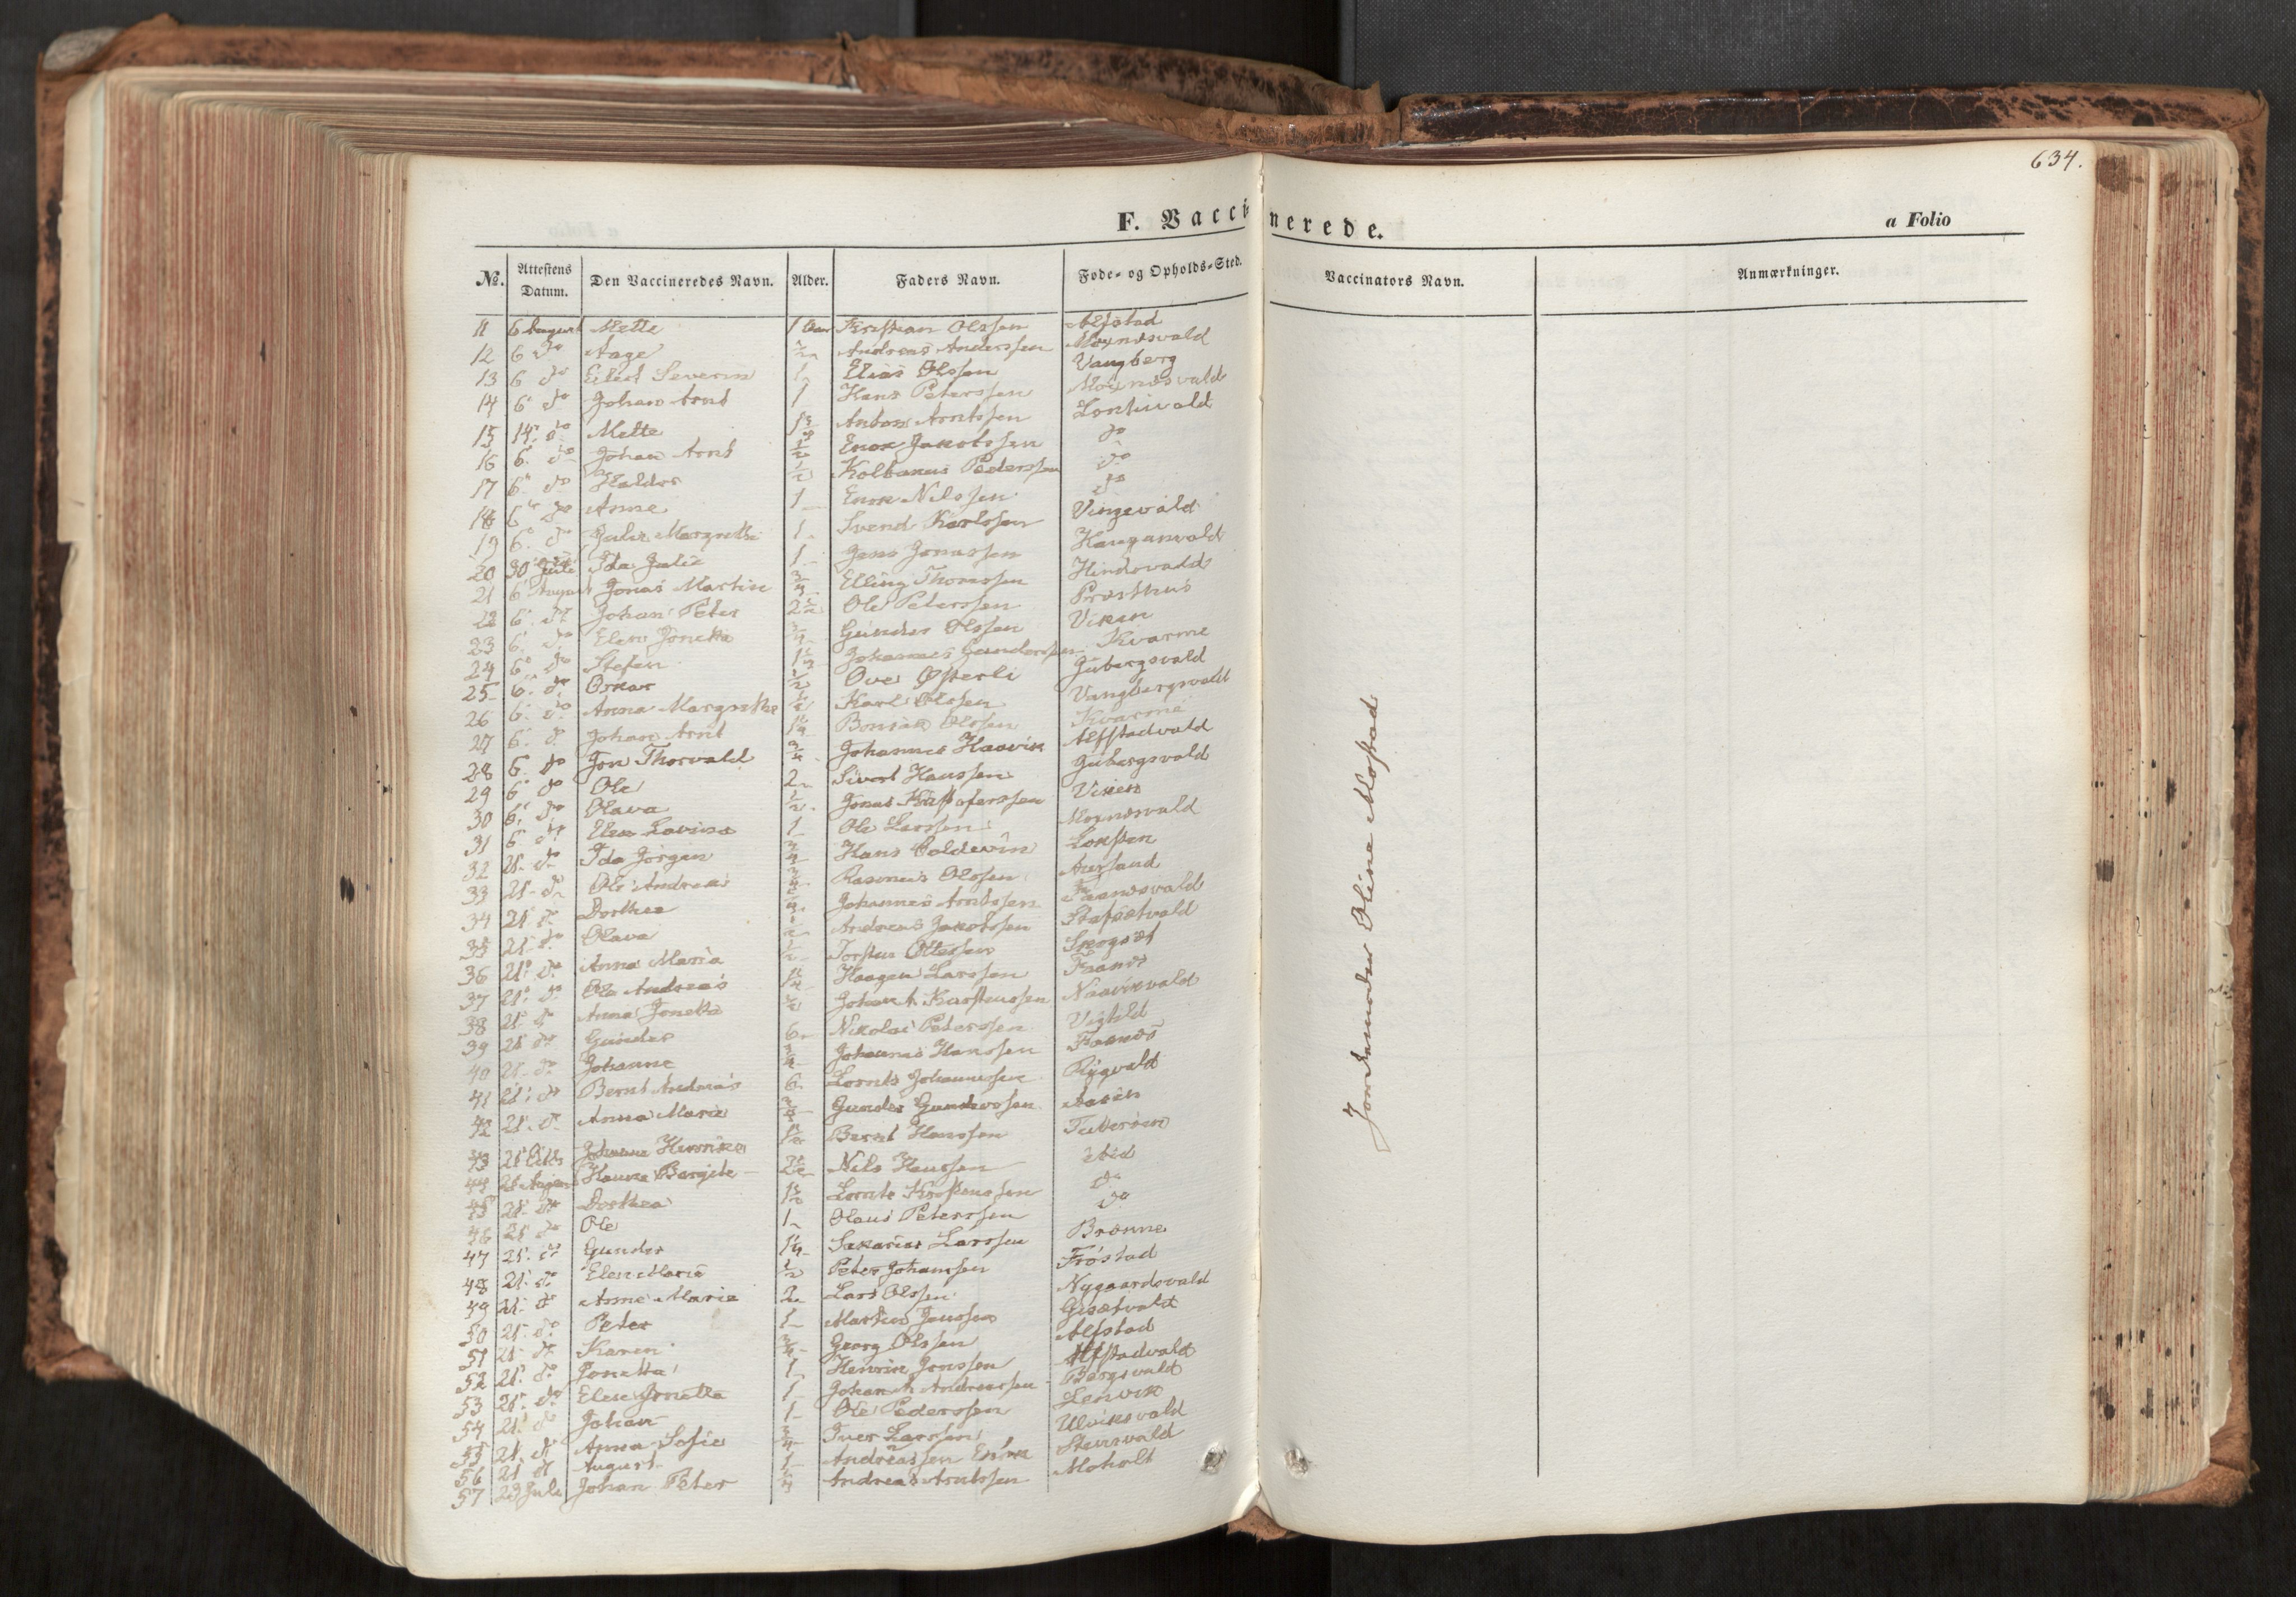 634.
F. Vaccinerede.
a Folio
No. Attestens Datum. Den Vaccineredes Navn. Alder. Faders Navn. Føde- og Opholds-Sted. Vaccinators Navn. Anmærkninger.
11 6 August Mette 1 Aar Kristian Olssen Alfstad
12 6 do Aage 1/2 Andreas Anderssen Moxnesvald
13 6 do Eilert Severin 1 Elias Olssen Vangberg
14 6 do Johan Arnt 1 Hans Peterssen Moxnesvald
15 14 do Mette 1 1/2 Anton Arntssen
16 6 do Johan Arnt 1/2 Enok Jakobssen do
17 6 do Haldor 1/2 Kolbanus Pederssen do
18 6 do Anne 1 Enok Nilssen do
19 6 do Margrethe 1 Svend Karlssen Vingevald
20 30 Juli Ida Julie 1 Jens Jonassen Hauganvald
21 6 August Jonas Martin 3/4 Elling Thomssen Hindsvald
22 6 do Johan Peter 2 1/2 Ole Peterssen Præsthus
23 6 do Elen Jonetta 3/4 Gunder Olssen Viken
24 6 do Stefen 1 1/2 Johannes Gunderssen Kvarme
25 6 do Oskar 1/2 Ove Østerli Gubergsvald
26 6 do Anna Margrethe 1/2 Karl Olssen Vangbergsvald
27 6 do Johan Arnt 1 1/4 Bonsak Olssen Kvarme
28 6 do Jon Thorvald 3/4 Johannes Haavik Alfstadvald
29 6 do Ole 2 Sivert Hanssen Gubergsvald
30 6 do Olava 1/2 Jonas Kristoferssen Viken
31 6 do Elen Lovisa 1 Ole Larssen Moxnesvald
32 21 do Ida Jørgin 3/4 Hans Coldevin Loksten
33 21 do Ole Andreas 3/4 Rasmus Olssen Aursand
34 21 do Dorthea Johannes Arntssen
35 21 do Olava 1/2 Andreas Jakobssen Stafsetvald
36 21 do Anna Maria 1/2 Torsten Ottessen Skogset
37 21 do Ole Andreas Haagen Larssen Faanes
38 21 do Anna Jonetta 1/2 Johan A Karstenssen
39 21 do Gunder 6 Nikolai Peterssen Vigtild
40 21 do Johanne 3/4 Johannes Hanssen Faanes
41 21 do Bernt Andreas 6 Lornts Johannessen Rygvald
42 21 do Anna Marie 3/4 Gunder Gunderssen Aasen
43 21 Johanna Henrika 1 1/2 Bernt Hanssen Tutterøen
44 21 August Hanna Bergite 2 1/2 Nils Hanssen ibid
45 21 do Dorthea 1 1/2 Lornts Kristenssen do
46 21 do Ole 1 Olaus Peterssen do
47 21 do Gunder 1 1/4 Sakarias Larssen Brønne
48 21 do Elen Marie 1/2 Peter Johanssen Frøstad
49 21 do Anne Marie 2 Lars Olssen Nygaardsvald
50 21 do Peter 1 Martin Janssen Gisetvald
51 21 do Karen 3/4 Georg Olssen Alfstad
52 21 do Jonetta 1 Henrik Jonssen Alfstadvald
53 21 do Elen Jonetta 1 Johan A Andreassen Bergsvald
54 21 do Johan 1 Ole Pederssen Lenvik
55 21 do Anna Sofie 3/4 Iver Larssen Ulviksvald
56 21 do August 1 Andreassen Enok Stensvald
57 29 Juli Johan Peter Andreas Arntssen Moholt
Jordemoder Oline Mostad